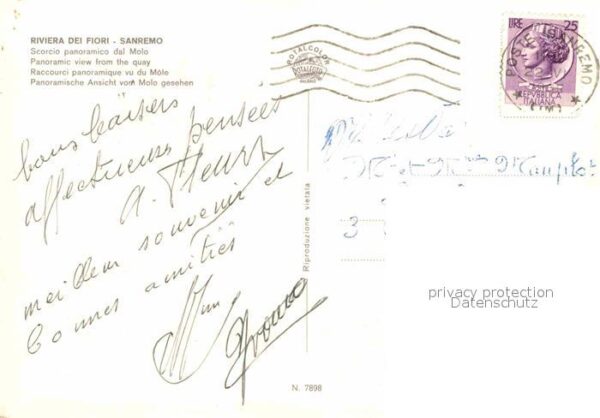 RIVIERA DEI FIORI - SANREMO
Scorcio panoramico dal Molo
Panoramic view from the quay
Raccourci panoramique vu du Môle
Panoramische Ansicht vom Molo gesehen
ROTALCOLOR
ROTALFOTO
MILANO
LIRE 25
POSTE SANREMO
REPVBBLICA
ITALIANA
bons baisers
affectueuses pensées
A. Fleury
meilleur souvenir et
bonnes amitiés
Yvonne
M et Mme
3
Riproduzione vietata
privacy protection
Datenschutz
N. 7898